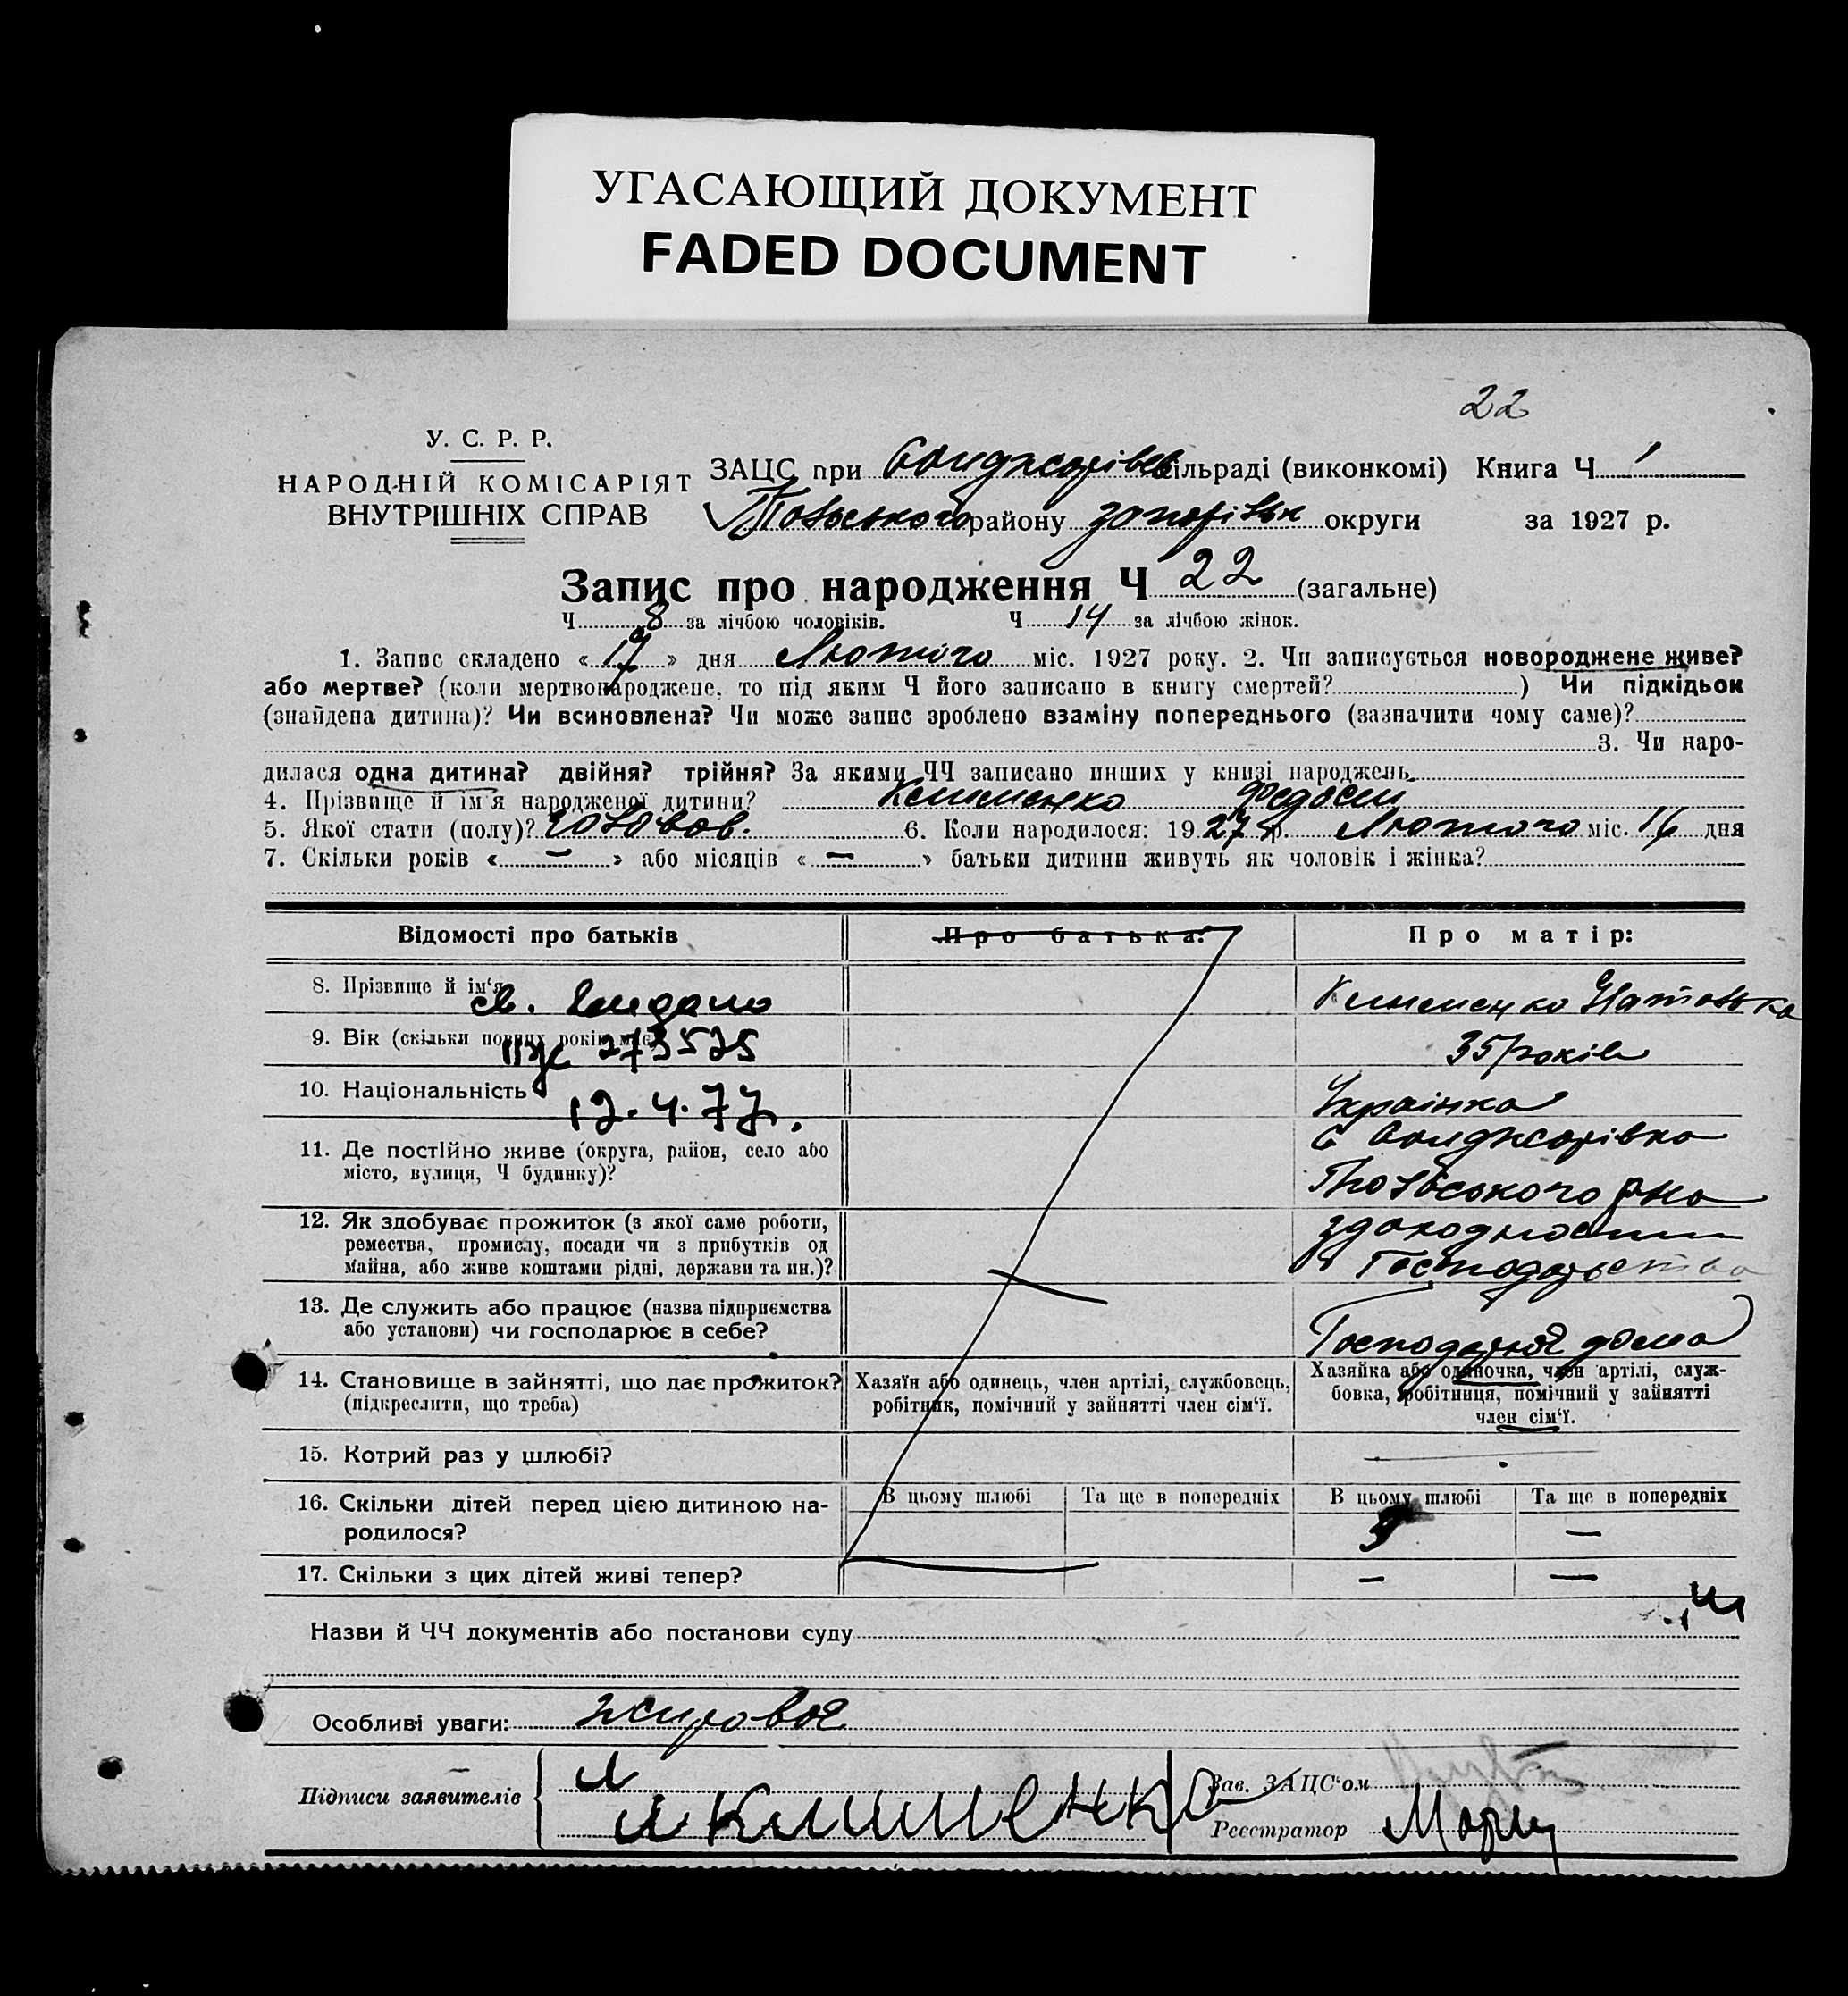 УГАСАЮЩИЙ ДОКУМЕНТ
FADED DOCUMENT
22
У. С. Р. Р.
НАРОДНІЙ КОМІСАРІЯТ
ВНУТРІШНІХ СПРАВ
ЗАЦС при сільраді (виконкомі) Книга Ч 1
району запорізьк округи за 1927 р.
Запис про народження Ч 22 (загальне)
Ч 8 за лічбою чоловіків. Ч 14 за лічбою жінок.
1. Запис складено « 17 » дня Лютого міс. 1927 року. 2. Чи записується новороджене живе?
або мертве? (коли мертвонароджене, то під яким Ч його записано в книгу смертей? ) Чи підкідьок
(знайдена дитина)? Чи всиновлена? Чи може запис зроблено взаміну попереднього (зазначити чому саме)?
3. Чи наро-
дилася одна дитина? двійня? трійня? За якими ЧЧ записано инших у книзі народжень
4. Прізвище й ім'я народженої дитини?
5. Якої стати (полу)? 6. Коли народилося: 1927 р. Лютого міс. 16 дня
7. Скільки років « — » або місяців « — » батьки дитини живуть як чоловік і жінка?
Відомості про батьків
Про батька:
Про матір:
8. Прізвище й ім'я
9. Вік (скільки повних років має)
35 років
10. Національність
12.4.77.
Українка
11. Де постійно живе (округа, район, село або
місто, вулиця, Ч будинку)?
12. Як здобуває прожиток (з якої саме роботи,
ремества, промислу, посади чи з прибутків од
майна, або живе коштами рідні, держави та ин.)?
13. Де служить або працює (назва підприємства
або установи) чи господарює в себе?
дома
14. Становище в зайнятті, що дає прожиток?
(підкреслити, що треба)
Хазяїн або одинець, член артілі, службовець,
робітник, помічний у зайнятті член сім'ї.
Хазяйка або одиночка, член артілі, служ-
бовка, робітниця, помічний у зайнятті
член сім'ї.
15. Котрий раз у шлюбі?
16. Скільки дітей перед цією дитиною на-
родилося?
В цьому шлюбі
Та ще в попередніх
В цьому шлюбі
Та ще в попередніх
—
17. Скільки з цих дітей живі тепер?
—
—
Назви й ЧЧ документів або постанови суду
Особливі уваги:
Підписи заявителів
Зав. ЗАЦС'ом
Реєстратор